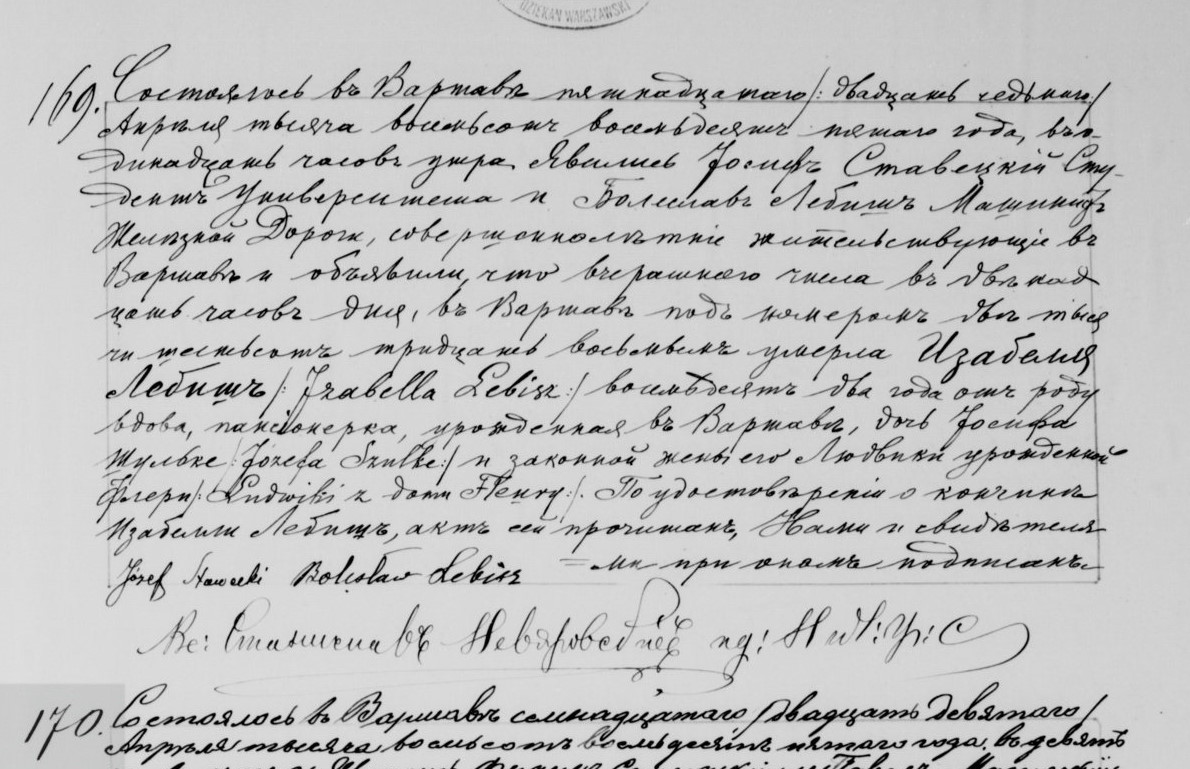 DZIEKAN WARSZAWSKI
169. Состоялось въ Варшавѣ пятнадцатаго /: двадцать седьмаго /
Апрѣля тысяча восемьсотъ восемьдесятъ пятаго года, въ о-
динадцать часовъ утра. Явились Іосифъ Ставецкій Сту-
дентъ Университета и Болеславъ Лебишъ Машинистъ
Желѣзной Дороги, совершеннолѣтніе жительствующіе въ
Варшавѣ и объявили, что вчерашняго числа въ двѣнад
цать часовъ дня, въ Варшавѣ подъ номеромъ двѣ тыся
чи шестьсотъ тридцать восьмымъ умерла Изабелля
Лебишъ /: Izabella Lebisz :/ восемьдесятъ два года отъ роду
вдова, пансіонерка, урожденная въ Варшавѣ, дочь Іосифа
Шульке /: Józefa Szulke :/ и законной жены его Людвики урожденной
Флери /: Ludwiki z domu Fleury :/. По удостовѣреніи о кончинѣ
Изабелли Лебишъ, актъ сей прочитанъ, Нами и свидѣтеля
=ми при ономъ подписанъ.
Józef Stawecki Bolesław Lebisz
Кс: Станиславъ Невяровскій
170. Состоялось въ Варшавѣ семнадцатаго /двадцать девятаго/
Апрѣля тысяча восемьсотъ восемьдесятъ пятаго года, въ девять